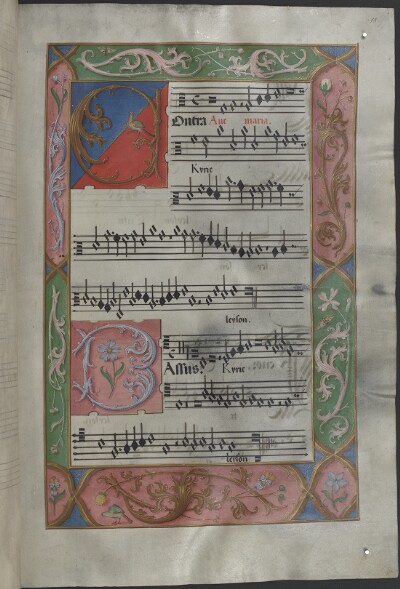 COntra Aue maria.
Kyrie
leyson.
BAssus Kyrie
leyson